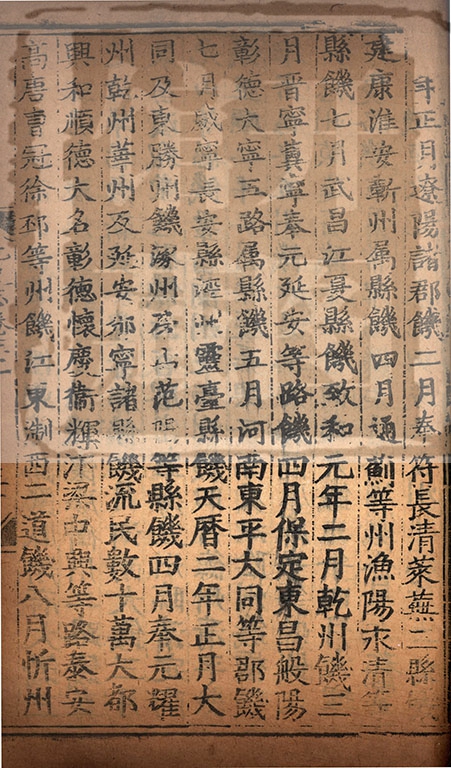 年正月遼陽諸郡饑二月奉符長清萊蕪二縣
建康淮安蘄州属縣饑四月通薊等州漁陽永清等
縣饑七月武昌江夏縣饑致和元年二月乾州饑三
月晋寧冀寧奉元延安等路饑四月保定東昌般陽
彰德大寧五路属縣饑五月河南東平大同等郡饑
七月咸寧長安縣涇州靈臺縣饑天曆二年正月大
同及東勝州饑涿州房山范陽等縣饑四月奉元耀
州乾州華州及延安邠寧諸縣饑流民數十萬大都
興和順德大名彰德懷慶衛輝汴梁中興等路泰安
高唐曹冠徐邳等州饑江東浙西二道饑八月忻州